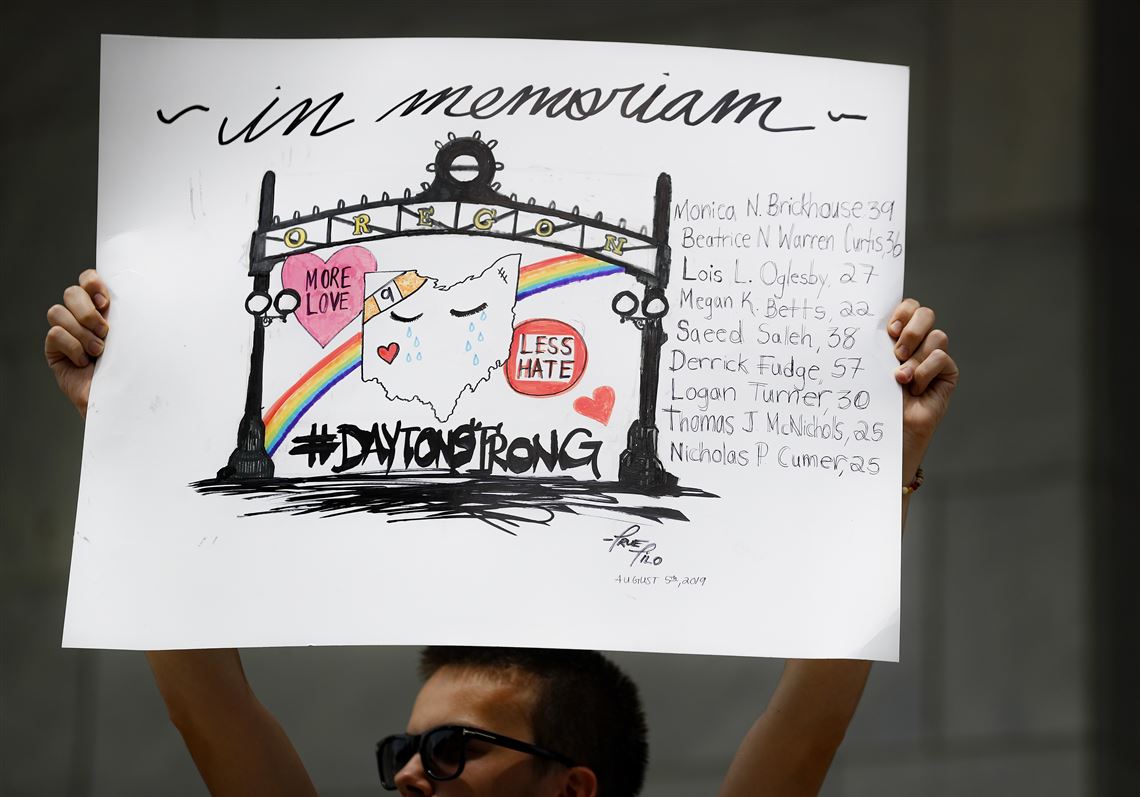 ~ in memoriam ~
OREGON
MORE
LOVE
9
LESS
HATE
#DAYTONSTRONG
Monica N. Brickhouse, 39
Beatrice N Warren Curtis, 36
Lois L. Oglesby, 27
Megan K. Betts, 22
Saeed Saleh, 38
Derrick Fudge, 57
Logan Turner, 30
Thomas J. McNichols, 25
Nicholas P Cumer, 25
AUGUST 5th, 2019